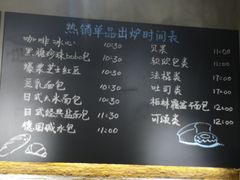 热销单品出炉时间表
咖啡冰心 10:30
黑糖珍珠bobo包 10:30
爆浆芝士红豆 10:30
豆乳面包 10:30
日式大冰面包 10:30
日式经典盐面包 11:30
德国碱水包 11:00
贝果 11:00
软欧包类 11:00
法棍类
吐司类
12:00
可颂类 12:00